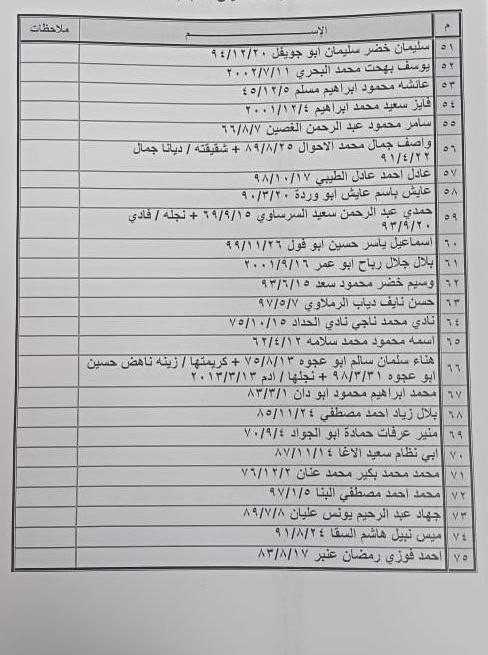 م الاســـــــــم ملاحظات
٥١ سليمان خضر سليمان ابو جويفل ٩٤/١٢/٢٠
٥٢ يوسف بهجت محمد البحري ٢٠٠٢/٧/١١
٥٣ عائشه محمود ابراهيم مسلم ٤٥/١٢/٥
٥٤ فايز سعيد محمد ابراهيم ٢٠٠١/١٢/٤
٥٥ سامر محمود عبد الرحمن الغصين ٦٦/٨/٧
٥٦ واصف جمال محمد الاحوال ٨٩/٨/٢٥ + شقيقته / ديانا جمال
٩١/٤/٢٢
٥٧ عادل احمد عادل الطيبي ٩٨/١٠/١٧
٥٨ عايش باسم عايش ابو وردة ٩٠/٣/٢٠
٥٩ حمدي عبد الرحمن سعيد السرساوي ٦٩/٩/١٥ + نجله / فادي
٩٣/٩/٢٠
٦٠ اسماعيل ياسر حسين ابو فول ٩٩/١١/٢٦
٦١ بلال جلال رباح ابو عمر ٢٠٠١/٩/١٦
٦٢ وسيم خضر محمود سعد ٩٣/٦/١٥
٦٣ حسن نايف دياب الرملاوي ٩٧/٥/٧
٦٤ نادي محمد ناجي نادي الحداد ٧٥/١٠/١٥
٦٥ اسمه محمود محمد سلامه ٦٢/٤/١٢
٦٦ هناء سلمان سالم ابو عجوه ٧٥/٨/١٣ + كريمتها / زينه ناهض حسين
ابو عجوه ٩٨/٣/٣١ + نجلها / ادم ٢٠١٣/٣/١٣
٦٧ محمد ابراهيم محمود ابو دان ٨٣/٣/١
٦٨ بلال زياد احمد مصطفي ٨٥/١١/٢٤
٦٩ منير عرفات حمادة ابو الجواد ٧٠/٩/٤
٧٠ ابي نظام سعيد الاغا ٨٧/١١/١٤
٧١ محمد محمد بكير محمد عنان ٧٦/١٢/٢
٧٢ محمد احمد مصطفي البنا ٩٧/١/٥
٧٣ جهاد عبد الرحيم يونس عليان ٨٩/٧/٨
٧٤ ميس نبيل هاشم السقا ٩١/٨/٢٤
٧٥ احمد فوزي رمضان عنبر ٨٣/٨/١٧